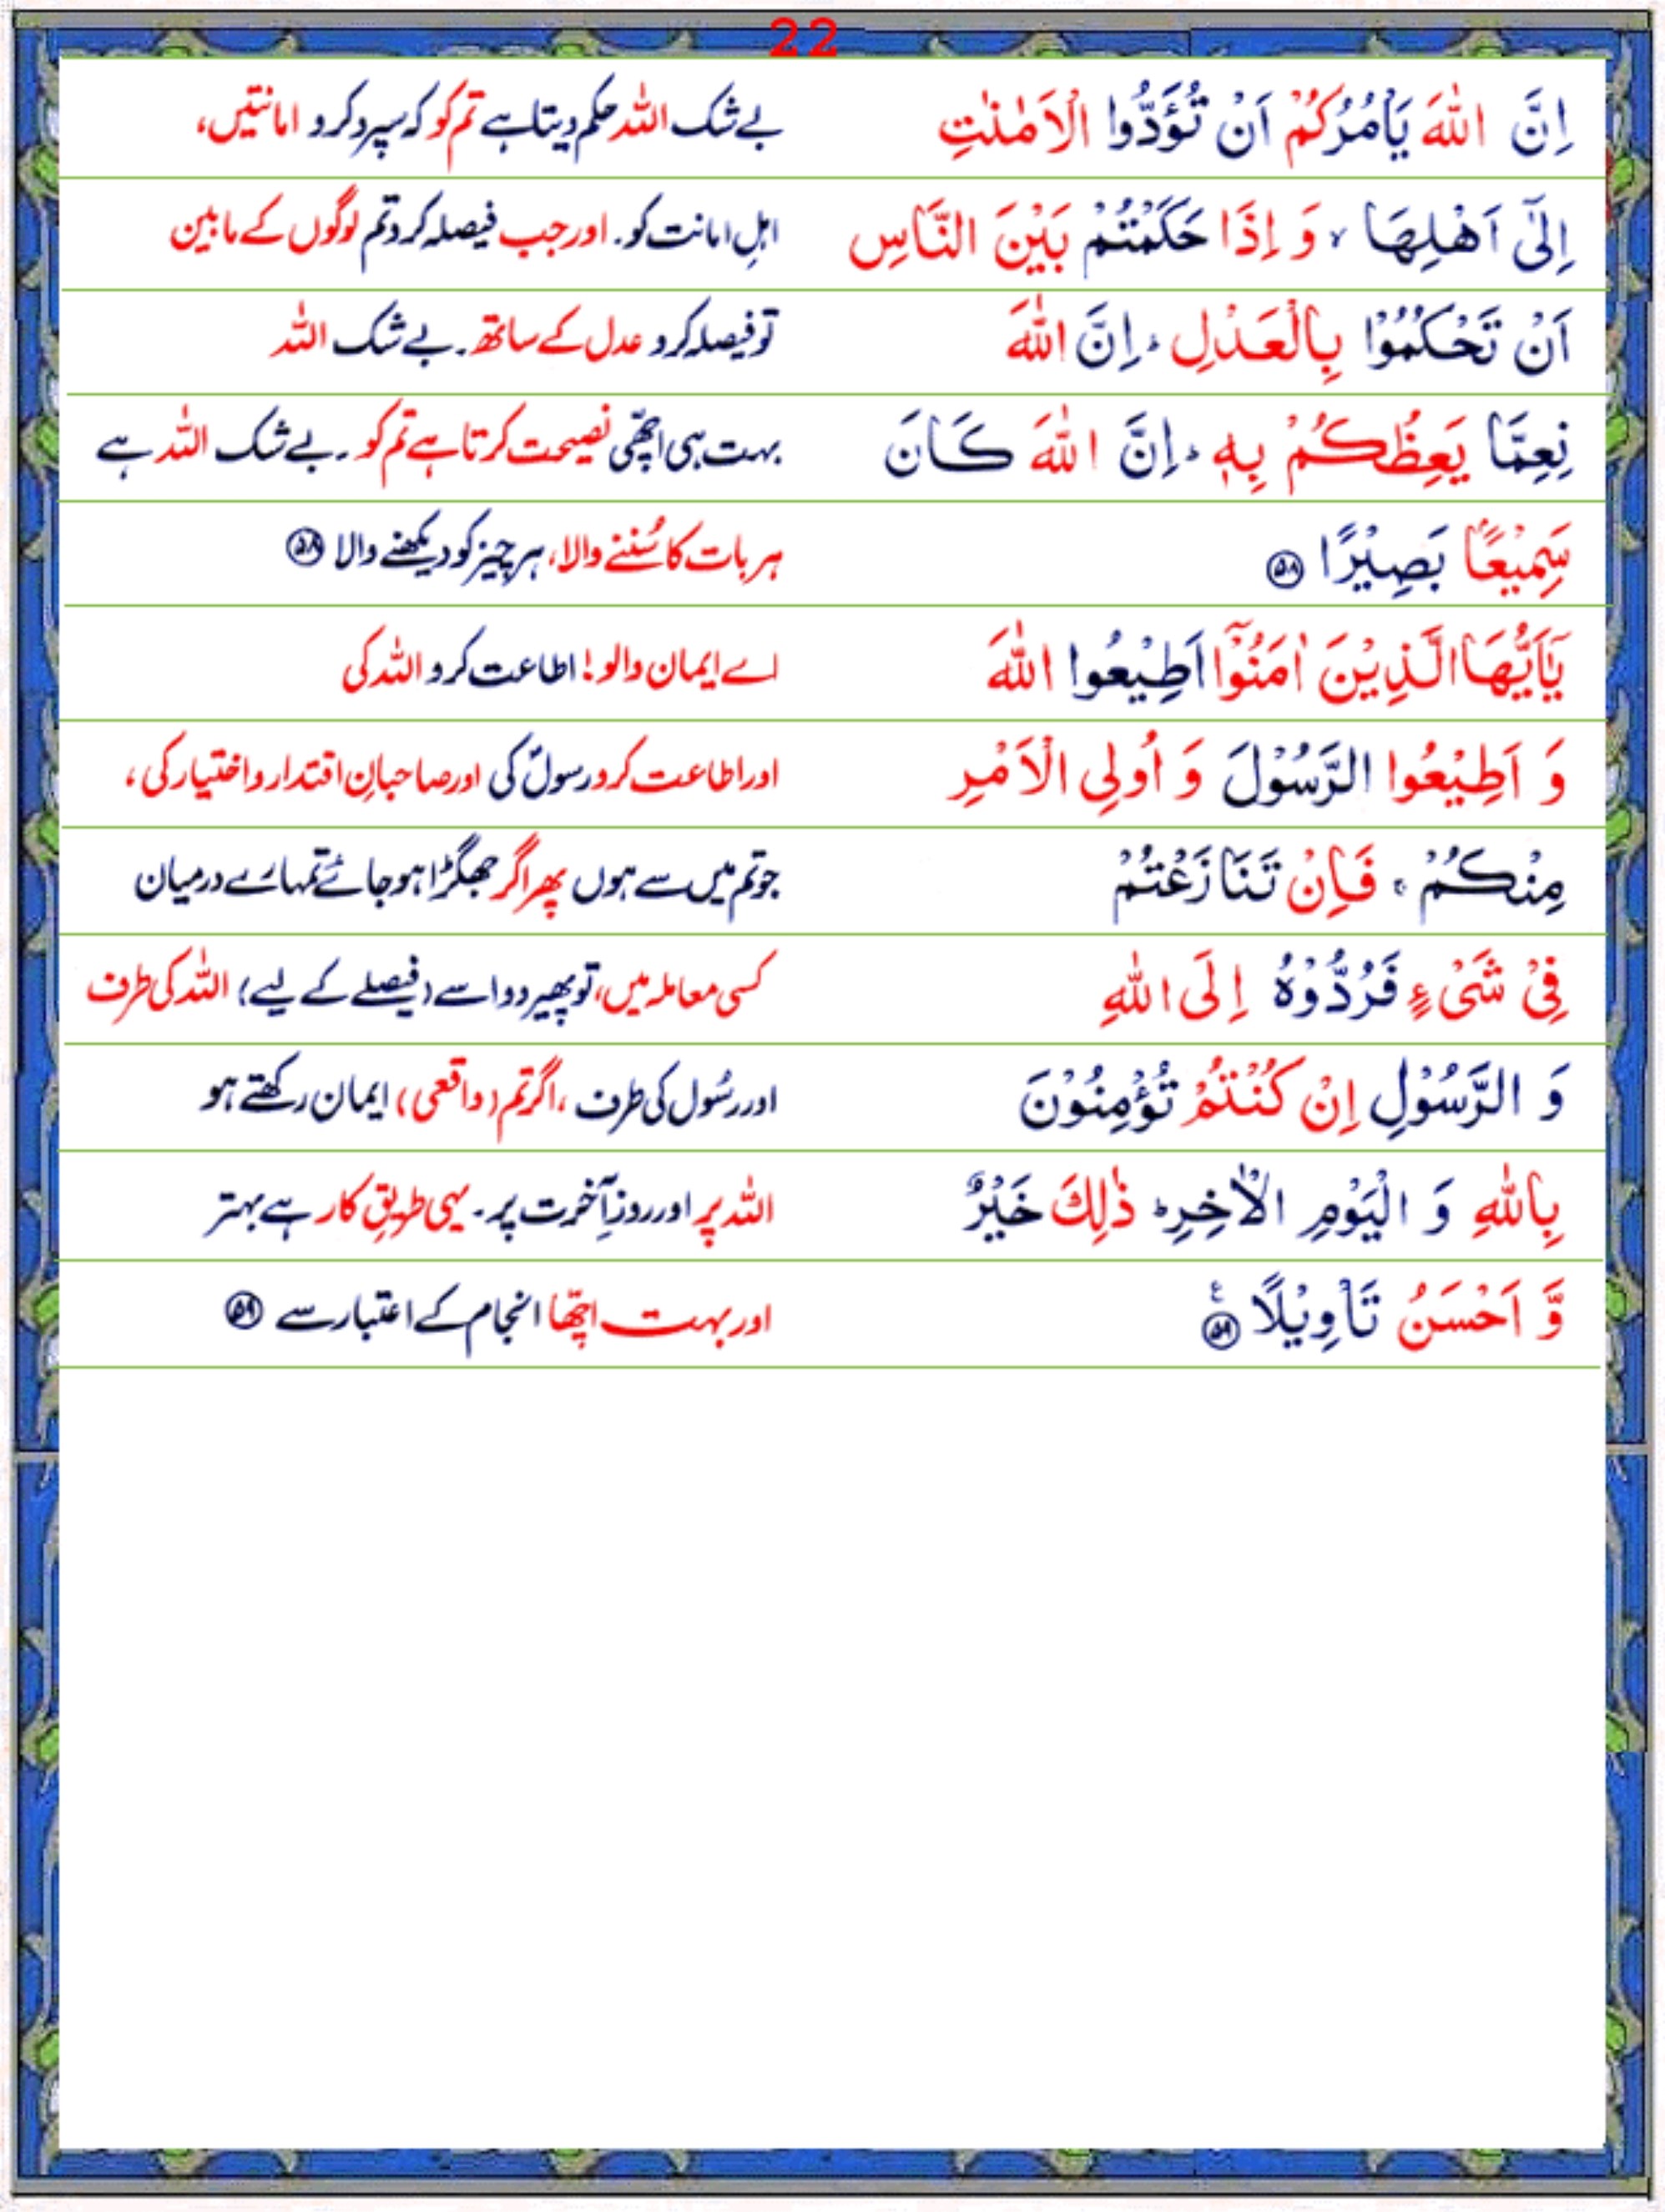 22
اِنَّ اللّٰهَ یَاۡمُرُكُمۡ اَنۡ تُؤَدُّوا الۡاَمٰنٰتِ بے شک اللہ حکم دیتا ہے تم کو کہ سپرد کرو امانتیں،
اِلٰۤی اَهۡلِهَا ۙ وَ اِذَا حَكَمۡتُمۡ بَیۡنَ النَّاسِ اہلِ امانت کو۔ اور جب فیصلہ کرو تم لوگوں کے مابین
اَنۡ تَحۡكُمُوۡا بِالۡعَدۡلِ ؕ اِنَّ اللّٰهَ تو فیصلہ کرو عدل کے ساتھ۔ بے شک اللہ
نِعِمَّا یَعِظُكُمۡ بِهٖ ؕ اِنَّ اللّٰهَ كَانَ بہت ہی اچھی نصیحت کرتا ہے تم کو۔ بے شک اللہ ہے
سَمِیۡعًۢا بَصِیۡرًا ﴿۵۸﴾ ہر بات کا سُننے والا، ہر چیز کو دیکھنے والا ﴿۵۸﴾
یٰۤاَیُّهَا الَّذِیۡنَ اٰمَنُوۡۤا اَطِیۡعُوا اللّٰهَ اے ایمان والو! اطاعت کرو اللہ کی
وَ اَطِیۡعُوا الرَّسُوۡلَ وَ اُولِی الۡاَمۡرِ اور اطاعت کرو رسولؐ کی اور صاحبانِ اقتدار و اختیار کی،
مِنۡكُمۡ ۚ فَاِنۡ تَنَازَعۡتُمۡ جو تم میں سے ہوں پھر اگر جھگڑا ہو جائے تمہارے درمیان
فِیۡ شَیۡءٍ فَرُدُّوۡهُ اِلَی اللّٰهِ کسی معاملہ میں، تو پھیر دو اسے (فیصلے کے لیے) اللہ کی طرف
وَ الرَّسُوۡلِ اِنۡ كُنۡتُمۡ تُؤۡمِنُوۡنَ اور رسُول کی طرف، اگر تم (واقعی) ایمان رکھتے ہو
بِاللّٰهِ وَ الۡیَوۡمِ الۡاٰخِرِ ؕ ذٰلِكَ خَیۡرٌ اللہ پر اور روزِ آخرت پر۔ یہی طریقِ کار ہے بہتر
وَّ اَحۡسَنُ تَاۡوِیۡلًا ﴿۵۹﴾ ع اور بہت اچھا انجام کے اعتبار سے ﴿۵۹﴾